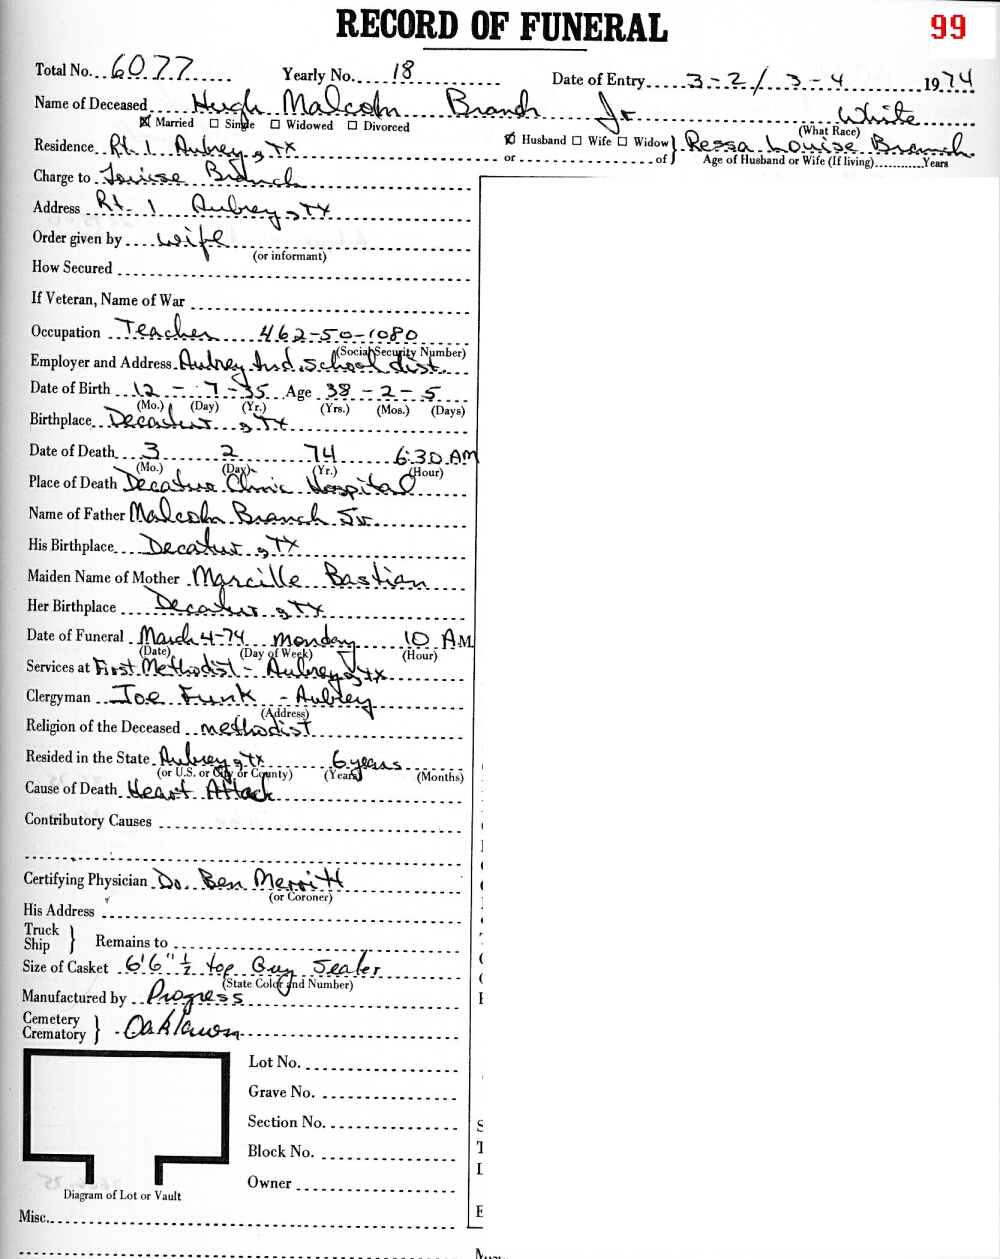 RECORD OF FUNERAL
99
Total No. 6077 Yearly No. 18 Date of Entry 3-2/3-4 1974
Name of Deceased Hugh Malcolm Branch Jr White
☒ Married ☐ Single ☐ Widowed ☐ Divorced (What Race)
Residence Rt. 1 Aubrey, TX ☒ Husband ☐ Wife ☐ Widow or of } Ressa Louise Branch
Age of Husband or Wife (If living) Years
Charge to Louise Branch
Address Rt. 1 Aubrey, TX
Order given by wife
(or informant)
How Secured
If Veteran, Name of War
Occupation Teacher 462-50-1080
(Social Security Number)
Employer and Address Aubrey Ind. School dist.
Date of Birth 12 - 7 - 35 Age 38 - 2 - 5
(Mo.) (Day) (Yr.) (Yrs.) (Mos.) (Days)
Birthplace Decatur, TX
Date of Death 3 2 74 6:30 AM
(Mo.) (Day) (Yr.) (Hour)
Place of Death Decatur Clinic Hospital
Name of Father Malcolm Branch Sr.
His Birthplace Decatur, TX
Maiden Name of Mother Marcille Bastian
Her Birthplace Decatur, TX
Date of Funeral March 4-74 Monday 10 AM
(Date) (Day of Week) (Hour)
Services at First Methodist - Aubrey, TX
Clergyman Joe Funk - Aubrey
(Address)
Religion of the Deceased methodist
Resided in the State Aubrey, TX 6 years
(or U.S. or City or County) (Years) (Months)
Cause of Death Heart Attack
Contributory Causes
Certifying Physician Dr. Ben Merritt
(or Coroner)
His Address
Truck
Ship } Remains to
Size of Casket 6'6" ½ top Sealer
(State Color and Number)
Manufactured by Progress
Cemetery
Crematory } Oaklawn
Lot No.
Grave No.
Section No.
Block No.
Owner
Diagram of Lot or Vault
Misc.